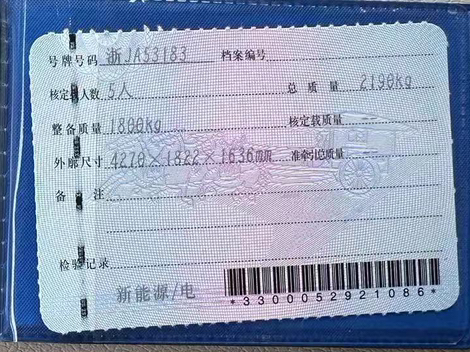 号牌号码 浙JA53183 档案编号
核定载人数 5人 总质量 2190kg
整备质量 1800kg 核定载质量
外廓尺寸 4270×1822×1636mm 准牵引总质量
备注
检验记录
新能源/电
*3300052921086*